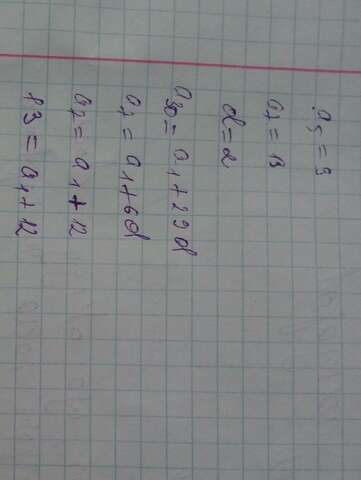 a₅ = 9
a₇ = 13
d = 2
a₃₀ = a₁ + 29d
a₇ = a₁ + 6d
a₇ = a₁ + 12
13 = a₁ + 12